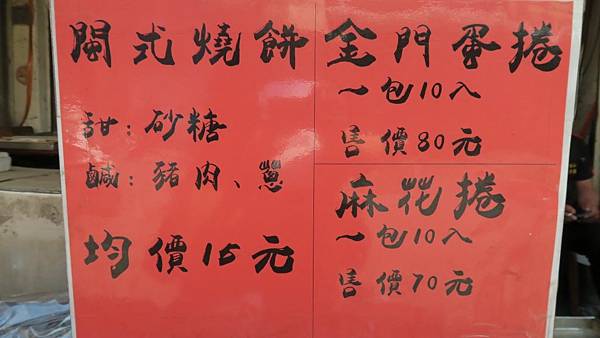 閩式燒餅
甜：砂糖
鹹：豬肉、蔥
均價15元
金門蛋捲
一包10入
售價80元
麻花捲
一包10入
售價70元